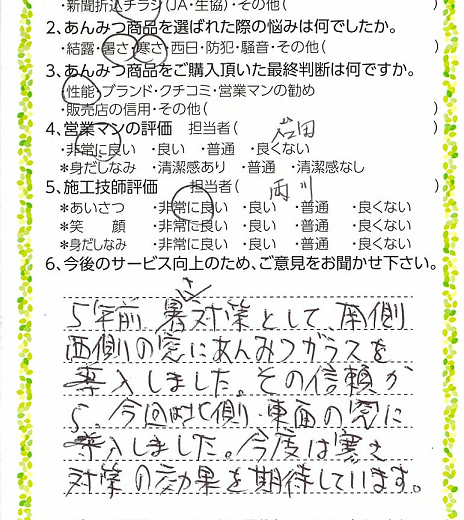 ・新聞折込チラシ(JA・生協)・その他(　　　　)
2、あんみつ商品を選ばれた際の悩みは何でしたか。
・結露・暑さ・寒さ・西日・防犯・騒音・その他(　　　　)
3、あんみつ商品をご購入頂いた最終判断は何ですか。
・性能・ブランド・クチコミ・営業マンの勧め
・販売店の信用・その他(　　　　)
4、営業マンの評価　担当者(　岩田　)
・非常に良い　・良い　・普通　・良くない
*身だしなみ　・清潔感あり　・普通　・清潔感なし
5、施工技師評価　担当者(　西川　)
*あいさつ　・非常に良い　・良い　・普通　・良くない
*笑　顔　・非常に良い　・良い　・普通　・良くない
*身だしなみ　・非常に良い　・良い　・普通　・良くない
6、今後のサービス向上のため、ご意見をお聞かせ下さい。
5年前 暑さ対策として、南側
西側の窓にあんみつガラスを
導入しました。その信頼か
ら、今回北側・東面の窓に
導入しました。今度は寒さ
対策の効果を期待しています。